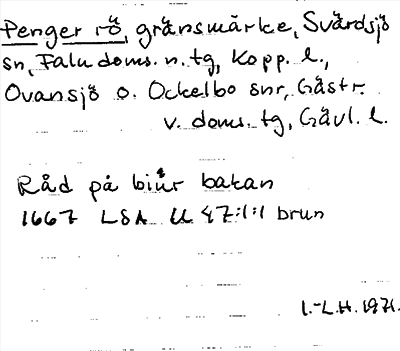 Penger rö, gränsmärke, Svärdsjö
sn, Falu doms. n. tg, Kopp. l.,
Ovansjö o. Ockelbo snr, Gästr.
v. doms. tg, Gävl. l.
Råd på biur bakan
1667 LSA U 47:1:1 brun
I.-L.H. 1971.